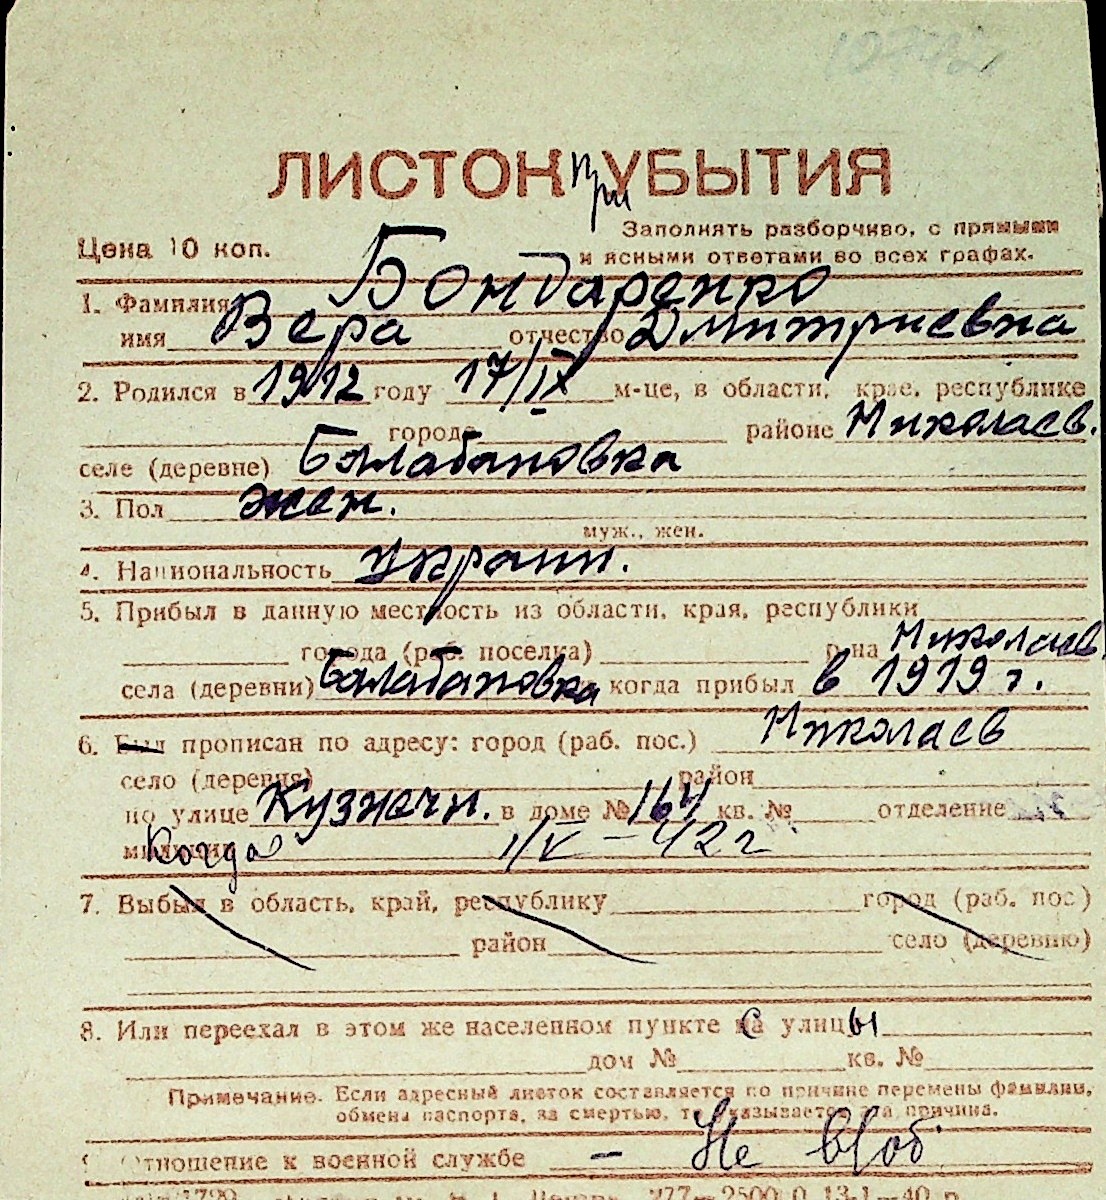 ЛИСТОК при УБЫТИЯ
Цена 10 коп.
Заполнять разборчиво, с прямыми
и ясными ответами во всех графах.
1. Фамилия Бондаренко
имя Вера отчество Дмитриевна
2. Родился в 1912 году 17/IX м-це, в области, крае, республике
города районе Николаев.
селе (деревне) Балабановка
3. Пол жен.
муж., жен.
4. Национальность украин.
5. Прибыл в данную местность из области, края, республики
города (раб. поселка) р-на Николаев.
села (деревни) Балабановка когда прибыл в 1919 г.
6. Был прописан по адресу: город (раб. пос.) Николаев
село (деревня) район
по улице Кузнечн. в доме № 164 кв. № отделение
милиции Когда 1/V – 42 г
7. Выбыл в область, край, республику город (раб. пос.)
район село (деревню)
8. Или переехал в этом же населенном пункте с улицы
дом № кв. №
Примечание. Если адресный листок составляется по причине перемены фамилии,
обмена паспорта, за смертью, то указывается эта причина.
Отношение к военной службе – Не в/об.
277—2500 0 13-1—40 г.